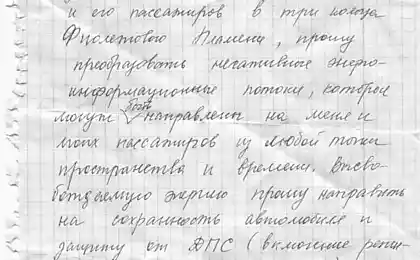 и его пассажиров в три кольца
Фиолетового Пламени, прошу
преобразовать негативные энерго-
информационные потоки, которые
могут быть направлены на меня и
моих пассажиров из любой точки
пространства и времени. Высво-
бождаемую энергию прошу направить
на сохранность автомобиля и
защиту от ДПС (включение режи-